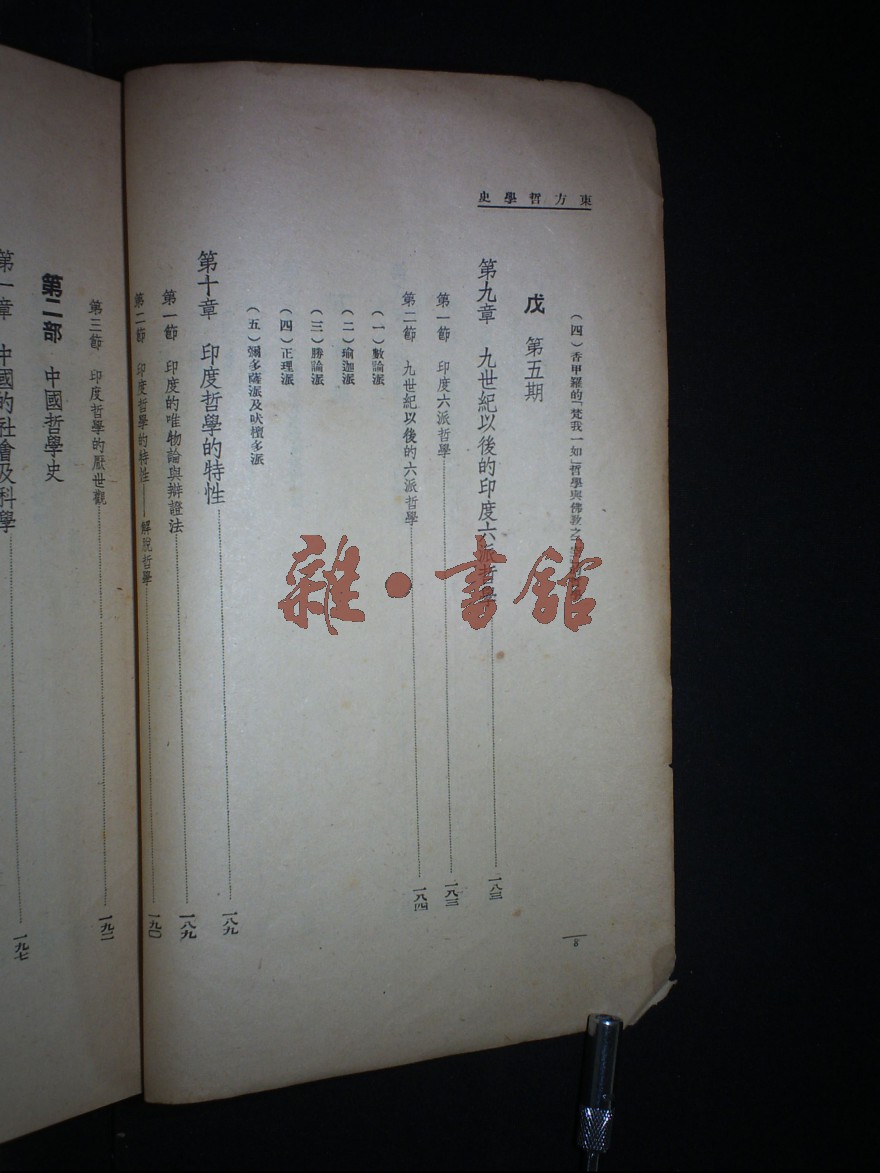 東方哲學史
(四)香甲羅的「梵我一如」哲學與佛教之
戊 第五期
第九章 九世紀以後的印度六派哲學……一八三
第一節 印度六派哲學……一八三
第二節 九世紀以後的六派哲學……一八四
(一)數論派
(二)瑜迦派
(三)勝論派
(四)正理派
(五)彌多薩派及吠檀多派
第十章 印度哲學的特性……一八九
第一節 印度的唯物論與辯證法……一八九
第二節 印度哲學的特性——解脫哲學……一九〇
第三節 印度哲學的厭世觀……一九二
第二部 中國哲學史
第一章 中國的社會及科學……一九七
8
雜·書館